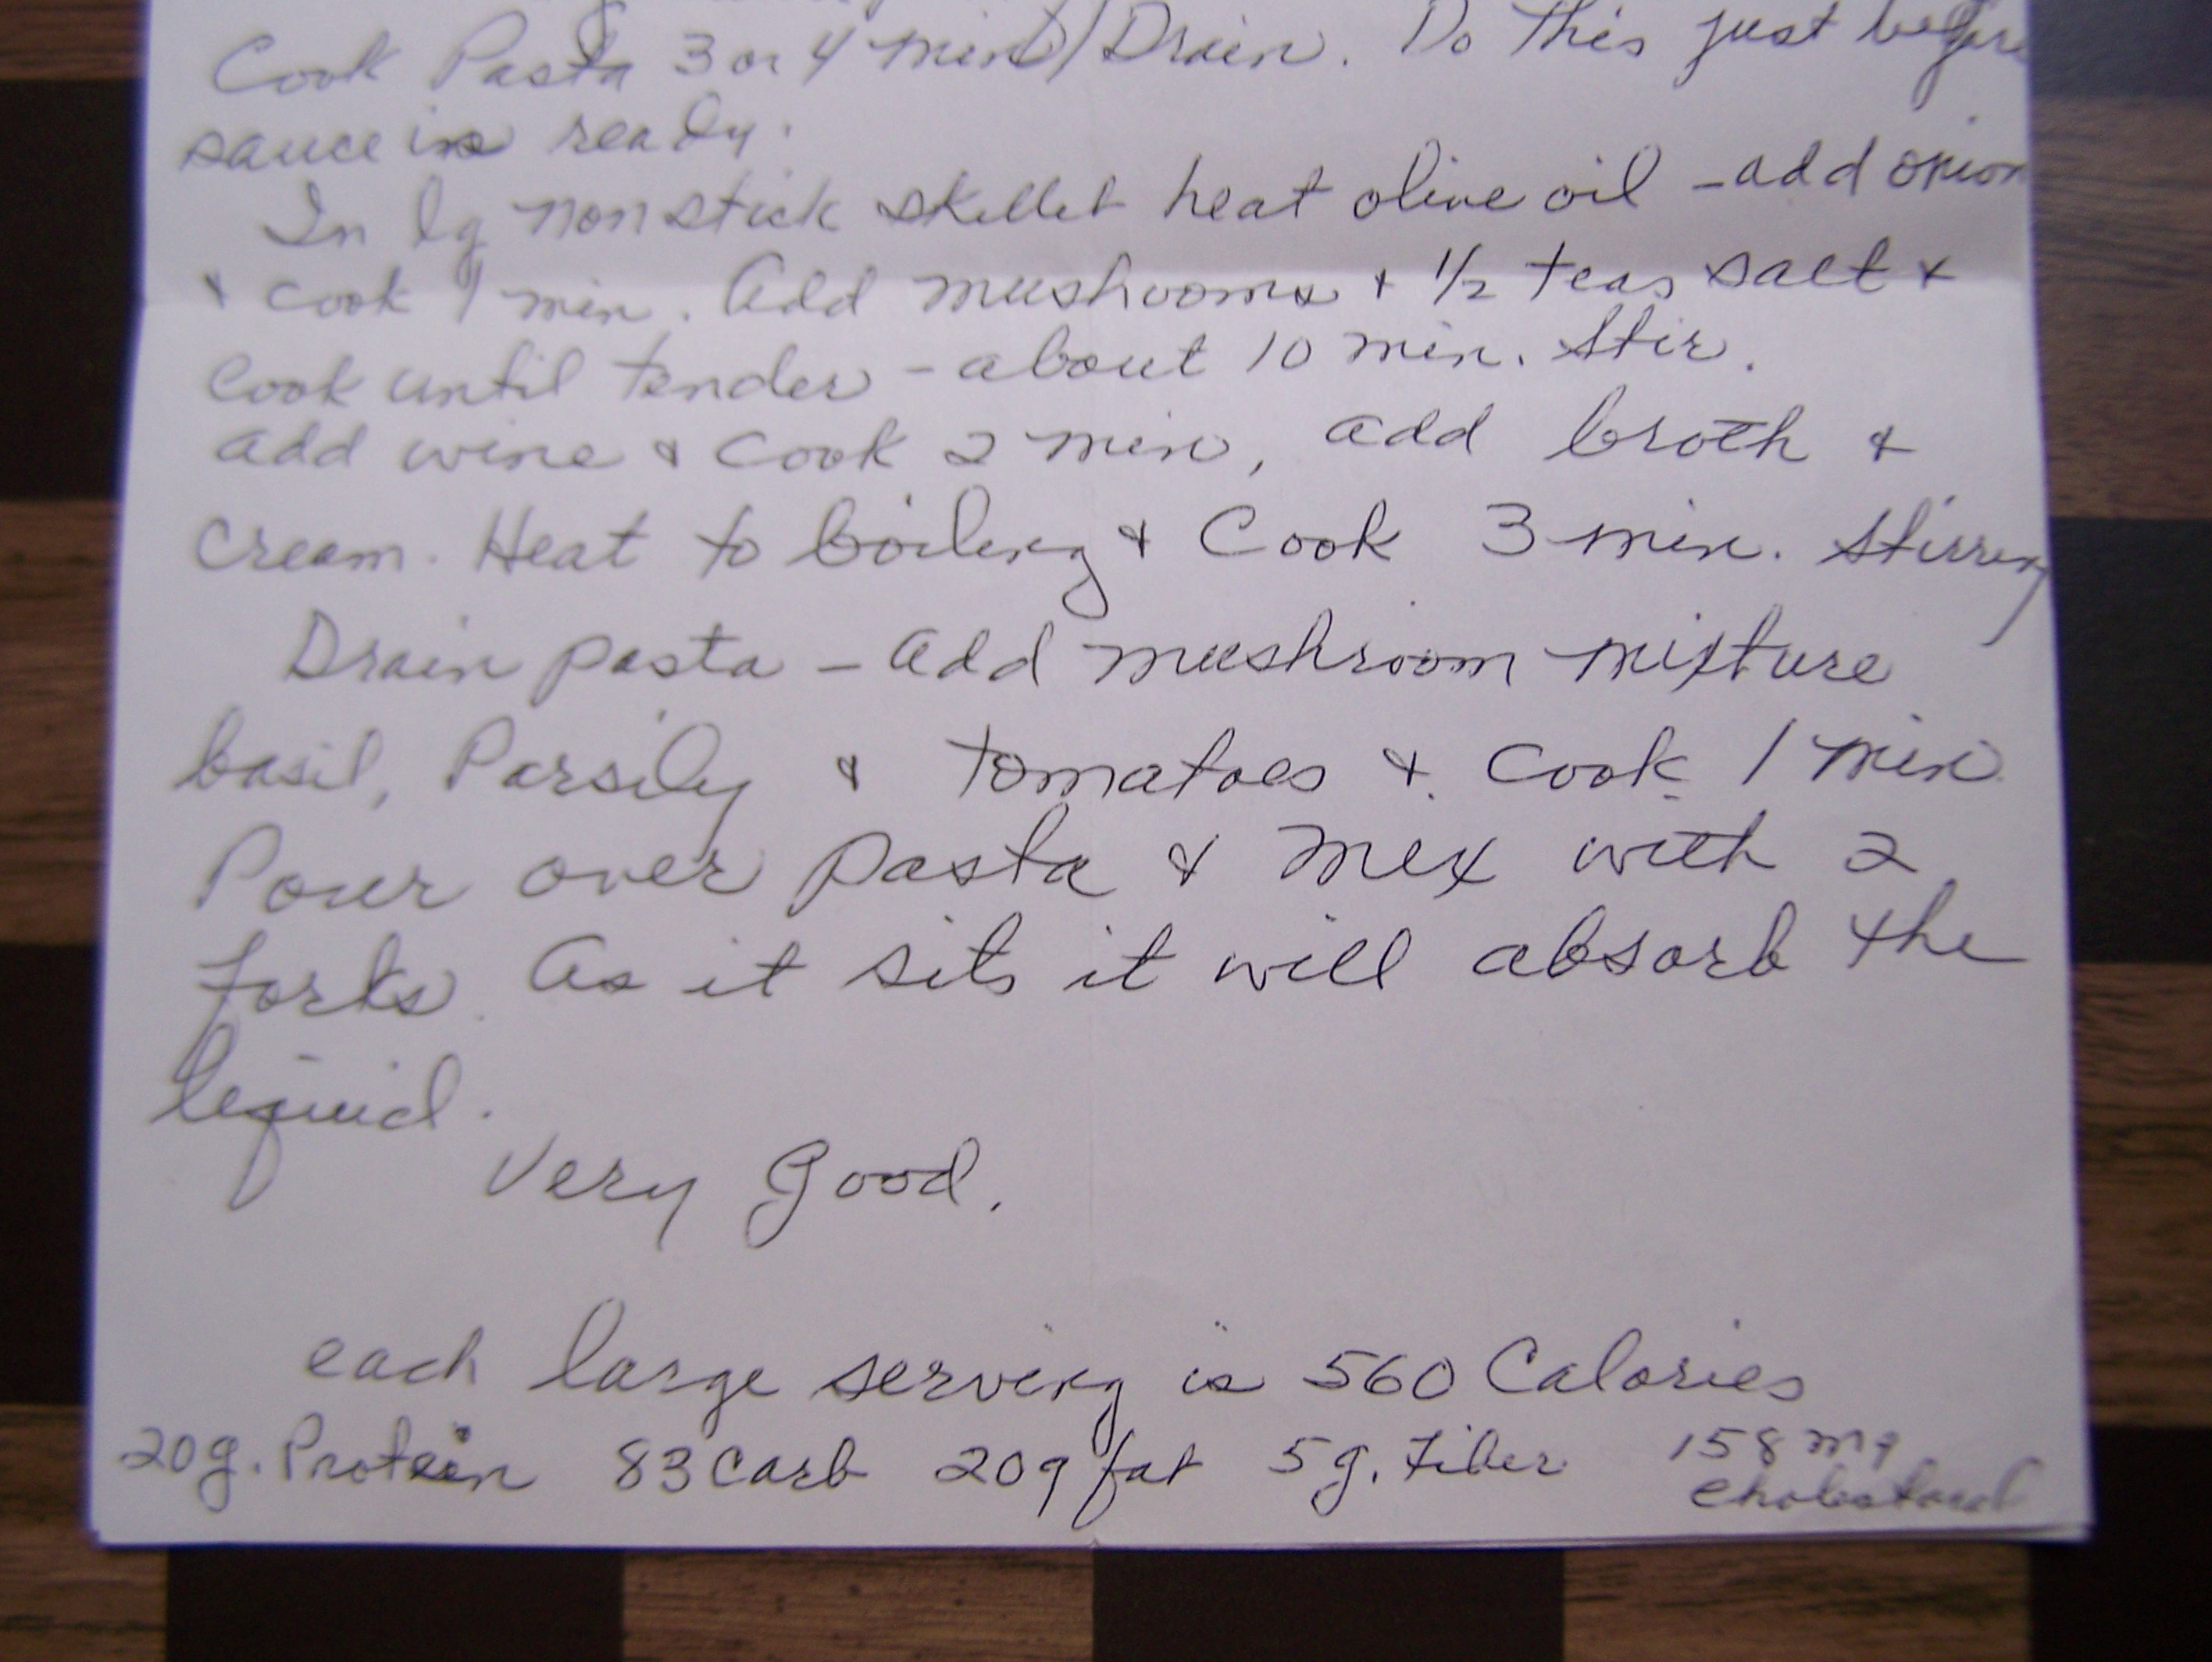 Cook Pasta 3 or 4 min) Drain. Do this just before
sauce is ready.
In lg nonstick skillet heat olive oil - add onion
& cook 1 min. Add mushrooms & 1/2 teas salt &
cook until tender - about 10 min. Stir.
add wine & cook 2 min, add broth &
cream. Heat to boiling & Cook 3 min. Stirring
Drain pasta - add mushroom mixture
basil, Parsily & tomatoes & cook 1 min
Pour over pasta & mix with 2
forks. As it sits it will absorb the
liquid.
Very Good.
each large serving is 560 Calories
20g. Protein 83 carb 20g fat 5g. Fiber 158 mg